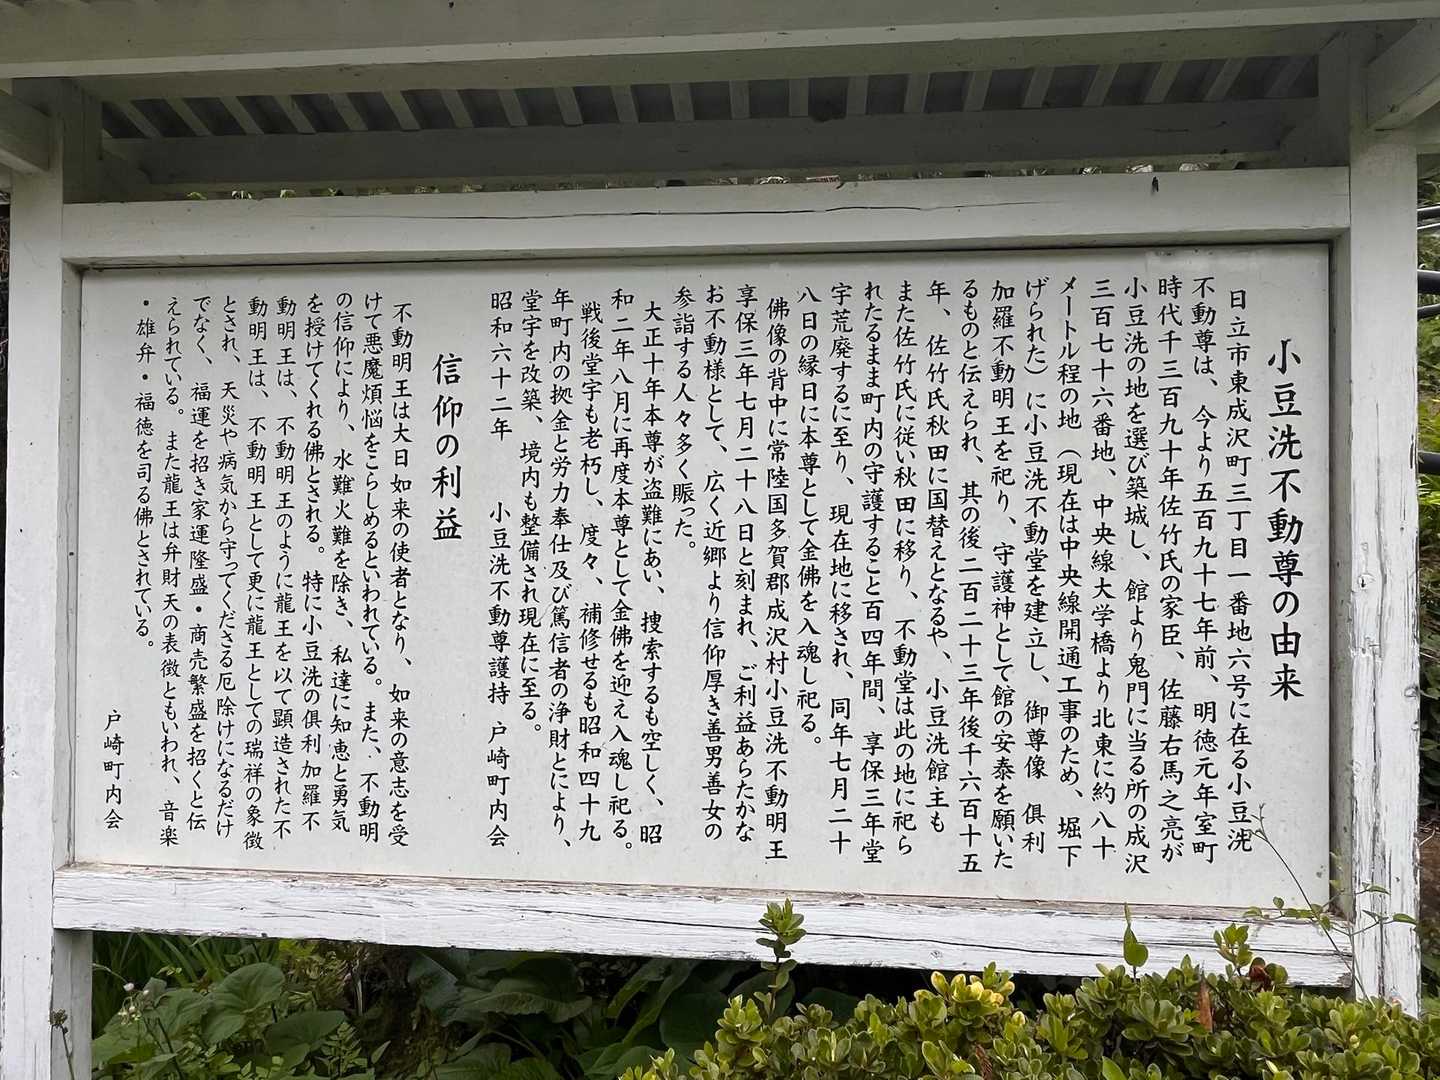 小豆洗不動尊の由来
日立市東成沢町三丁目一番地六号に在る小豆洗
不動尊は、今より五百九十七年前、明徳元年室町
時代千三百九十年佐竹氏の家臣、佐藤右馬之亮が
小豆洗の地を選び築城し、館より鬼門に当る所の成沢
三百七十六番地、中央線大学橋より北東に約八十
メートル程の地（現在は中央線開通工事のため、堀下
げられた）に小豆洗不動堂を建立し、御尊像　俱利
加羅不動明王を祀り、守護神として館の安泰を願いた
るものと伝えられ、其の後二百二十三年後千六百十五
年、佐竹氏秋田に国替えとなるや、小豆洗館主も
また佐竹氏に従い秋田に移り、不動堂は此の地に祀ら
れたるまま町内の守護すること百四年間、享保三年堂
宇荒廃するに至り、現在地に移され、同年七月二十
八日の縁日に本尊として金佛を入魂し祀る。
佛像の背中に常陸国多賀郡成沢村小豆洗不動明王
享保三年七月二十八日と刻まれ、ご利益あらたかな
お不動様として、広く近郷より信仰厚き善男善女の
参詣する人々多く賑った。
大正十年本尊が盗難にあい、捜索するも空しく、昭
和二年八月に再度本尊として金佛を迎え入魂し祀る。
戦後堂宇も老朽し、度々、補修せるも昭和四十九
年町内の拠金と労力奉仕及び篤信者の浄財とにより、
堂宇を改築、境内も整備され現在に至る。
昭和六十二年　小豆洗不動尊護持　戸崎町内会
信仰の利益
不動明王は大日如来の使者となり、如来の意志を受
けて悪魔煩悩をこらしめるといわれている。また、不動明
の信仰により、水難火難を除き、私達に知恵と勇気
を授けてくれる佛とされる。特に小豆洗の俱利加羅不
動明王は、不動明王のように龍王を以て顕造された不
動明王は、不動明王として更に龍王としての瑞祥の象徴
とされ、天災や病気から守ってくださる厄除けになるだけ
でなく、福運を招き家運隆盛・商売繁盛を招くと伝
えられている。また龍王は弁財天の表徴ともいわれ、音楽
・雄弁・福徳を司る佛とされている。
戸崎町内会